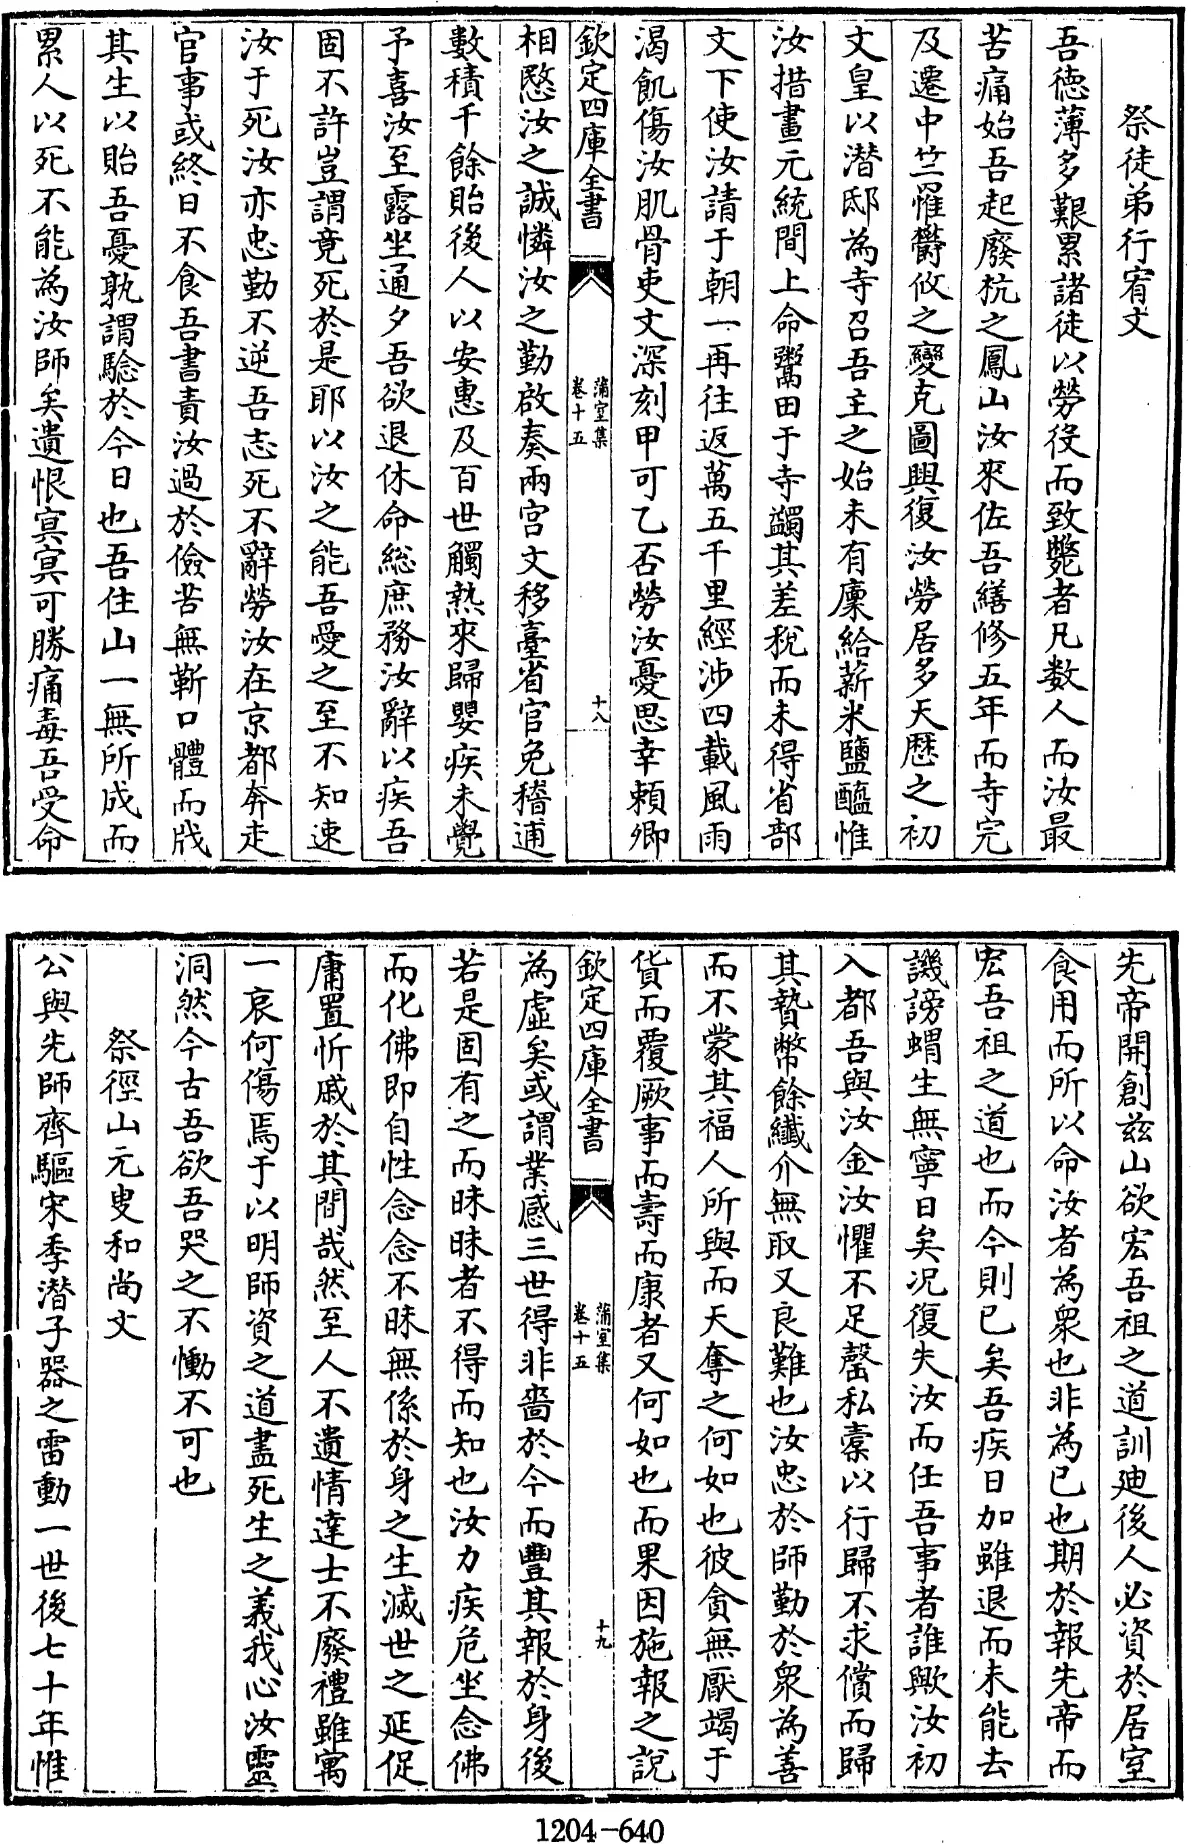 祭徒弟行宥文
吾徳薄多艱累諸徒以勞役而致斃者凡数人而汝最
苦痛始吾起廢杭之鳳山汝來佐吾繕修五年而寺完
及遷中竺罹欝攸之變克圖興復汝勞居多天歴之初
文皇以潛邸為寺召吾主之始未有廩給薪米鹽醯惟
汝措畫元統間上命鬻田于寺蠲其差稅而未得省部
文下使汝請于朝一再往返萬五千里經涉四載風雨
渴飢傷汝肌骨吏文深刻甲可乙否勞汝憂思幸頼卿
欽定四庫全書
蒲室集
卷十五
十八
相愍汝之誠憐汝之勤啟奏兩宫文移臺省官免稽逋
數積千餘貽後人以安惠及百世觸熱來歸嬰疾未覺
予喜汝至露坐通夕吾欲退休命総庶務汝辭以疾吾
固不許豈謂竟死於是耶以汝之能吾愛之至不知速
汝于死汝亦忠勤不逆吾志死不辭勞汝在京都奔走
官事或終日不食吾書責汝過於儉苦無靳口體而戕
其生以貽吾憂孰謂騐於今日也吾住山一無所成而
累人以死不能為汝師矣遺恨㝠㝠可勝痛毒吾受命
先帝開創兹山欲宏吾祖之道訓廸後人必資於居室
食用而所以命汝者為衆也非為已也期於報先帝而
宏吾祖之道也而今則已矣吾疾日加雖退而未能去
譏謗蝟生無寧日矣况復失汝而任吾事者誰歟汝初
入都吾與汝金汝懼不足罄私槖以行歸不求償而歸
其贄幣餘纎介無取又良難也汝忠於師勤於衆為善
而不蒙其福人所與而天奪之何如也彼貪無厭竭于
貨而覆厥事而壽而康者又何如也而果因施報之說
欽定四庫全書
蒲室集
卷十五
十九
為虚矣或謂業感三世得非嗇於今而豐其報於身後
若是固有之而昧昧者不得而知也汝力疾危坐念佛
而化佛即自性念念不昧無係於身之生滅世之延促
庸置忻戚於其間哉然至人不遺情達士不廢禮雖寓
一哀何傷焉于以明師資之道盡死生之義我心汝靈
洞然今古吾欲吾哭之不慟不可也
祭徑山元叟和尚文
公與先師齊驅宋季潛子器之雷動一世後七十年惟
1204-640